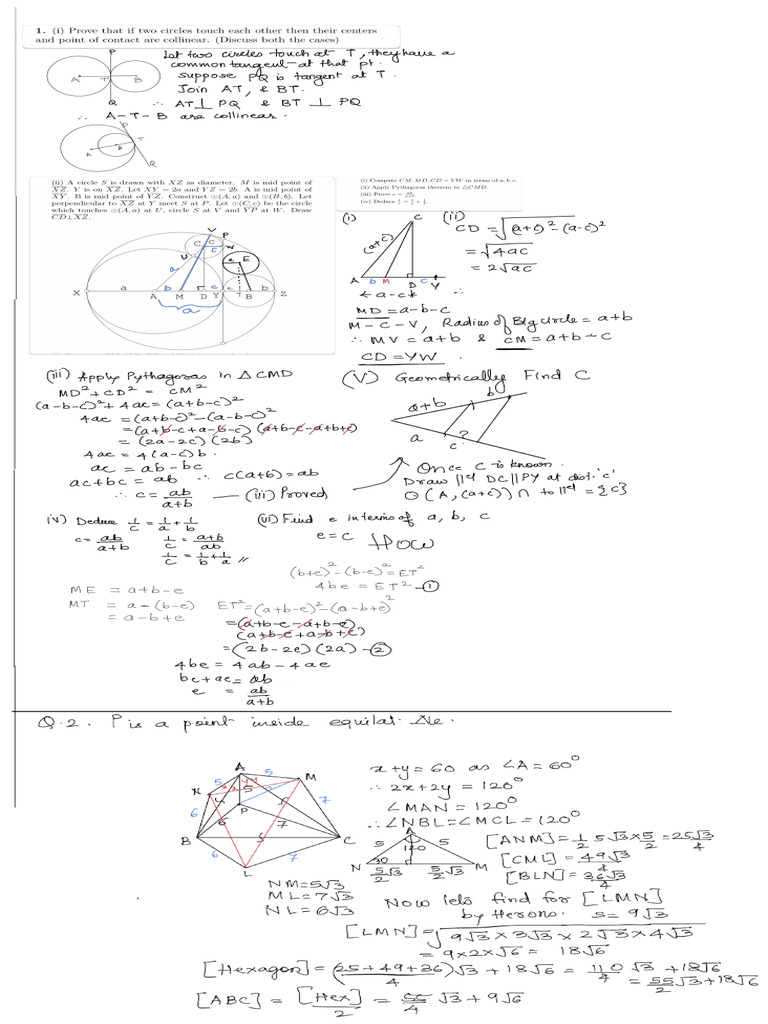 1. (i) Prove that if two circles touch each other then their centers
and point of contact are collinear. (Discuss both the cases)
Let two circles touch at T, they have a
common tangent at that pt.
suppose PQ is tangent at T.
Join AT, & BT.
∴ AT ⊥ PQ & BT ⊥ PQ
∴ A-T-B are collinear.
P
A T B
Q
P
T
A B
Q
(ii) A circle S is drawn with XZ as diameter. M is mid point of
XZ. Y is on XZ. Let XY = 2a and YZ = 2b. A is mid point of
XY. B is mid point of YZ. Construct ⊙(A, a) and ⊙(B, b). Let
perpendicular to XZ at Y meet S at P. Let ⊙(C, c) be the circle
which touches ⊙(A, a) at U, circle S at V and YP at W. Draw
CD⊥XZ.
(i) Compute CM, MD, CD = YW in terms of a, b, c.
(ii) Apply Pythagoras theorem to △CMD.
(iii) Prove c = ab/(a+b).
(iv) Deduce 1/c = 1/a + 1/b.
V P
C c W
U c
e E
a
X a A b M D Y e T B b Z
a
(i)
C
(a+c)
A b M D c Y
← a-c →
(ii)
CD = √((a+c)² - (a-c)²)
= √4ac
= 2√ac
∴
MD = a-b-c
M-C-V, Radius of Big circle = a+b
∴ MV = a+b & CM = a+b-c
CD = YW
(iii) Apply Pythagoras in △ CMD
MD² + CD² = CM²
(a-b-c)² + 4ac = (a+b-c)²
4ac = (a+b-c)² - (a-b-c)²
= (a+b-c+a-b-c) (a+b-c-a+b+c)
= (2a-2c) (2b)
4ac = 4(a-c)b.
ac = ab-bc
ac+bc = ab ∴ c(a+b) = ab
∴ c = ab/(a+b) — (iii) Proved
(V) Geometrically Find C
a+b b
a c?
Once C is known.
Draw ||el DC||PY at dist. 'c'
⊙(A, (a+c)) ∩ to ||el = {C}
iv) Deduce 1/c = 1/a + 1/b
c = ab/(a+b) 1/c = (a+b)/ab
1/c = 1/b + 1/a //
(vi) Find e in terms of a, b, c
e = c HOW
(b+e)² - (b-e)² = ET²
4be = ET² - ①
ME = a+b-e
MT = a-(b-e) ET² = (a+b-e)² - (a-b+e)²
= a-b+e
= (a+b-e-a+b-e)
(a+b-e+a-b+e)
= (2b-2e) (2a) - ②
4be = 4ab - 4ae
be+ae = ab
e = ab/(a+b)
Q.2. P is a point inside equilat. △le.
A 5 M
N 5 x y
6 5 7
P
6 7
B C
6 7
L
x+y = 60 as ∠A = 60°
∴ 2x+2y = 120°
∠MAN = 120°
∴ ∠NBL = ∠MCL = 120°
A
5 120 5
N 30 5/2√3 5/2√3 M
[ANM] = 1/2 5√3 × 5/2 = 25√3/4
[CML] = 49√3/4
[BLN] = 36√3/4
NM = 5√3
ML = 7√3
NL = 6√3
Now lets find for [LMN]
by Herons. s = 9√3
[LMN] = √(9√3 × 3√3 × 2√3 × 4√3)
= 9×2×√6 = 18√6
[Hexagon] = (25+49+36)/4 √3 + 18√6 = 110/4 √3 + 18√6
= 55/2 √3 + 18√6
[ABC] = [Hex]/2 = 55/4 √3 + 9√6